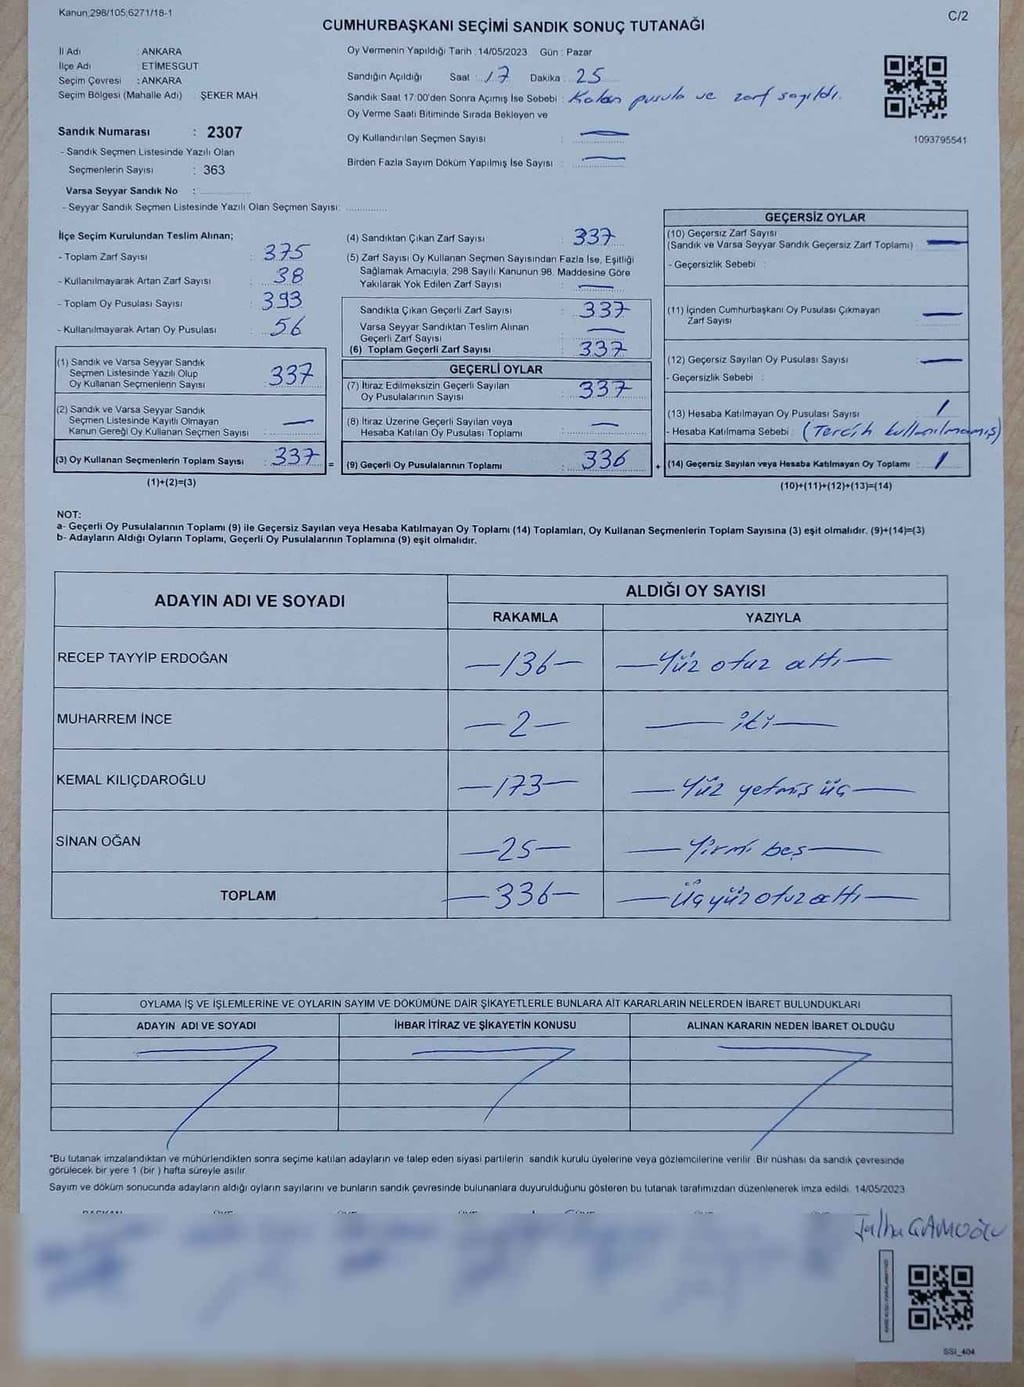 Kanun;298/105;6271/18-1
C/2
CUMHURBAŞKANI SEÇİMİ SANDIK SONUÇ TUTANAĞI
İl Adı : ANKARA
İlçe Adı : ETİMESGUT
Seçim Çevresi : ANKARA
Seçim Bölgesi (Mahalle Adı) ŞEKER MAH.
Oy Vermenin Yapıldığı Tarih :14/05/2023 Gün : Pazar
Sandığın Açıldığı Saat : 17 Dakika : 25
Sandık Saat 17:00'den Sonra Açımış İse Sebebi : Kalan pusula ve zarf sayıldı.
Oy Verme Saati Bitiminde Sırada Bekleyen ve
Oy Kullandırılan Seçmen Sayısı : —
Birden Fazla Sayım Döküm Yapılmış İse Sayısı : —
1093795541
Sandık Numarası : 2307
- Sandık Seçmen Listesinde Yazılı Olan
Seçmenlerin Sayısı : 363
Varsa Seyyar Sandık No :
- Seyyar Sandık Seçmen Listesinde Yazılı Olan Seçmen Sayısı:
İlçe Seçim Kurulundan Teslim Alınan;
- Toplam Zarf Sayısı : 375
- Kullanılmayarak Artan Zarf Sayısı : 38
- Toplam Oy Pusulası Sayısı : 393
- Kullanılmayarak Artan Oy Pusulası : 56
(1) Sandık ve Varsa Seyyar Sandık
Seçmen Listesinde Yazılı Olup
Oy Kullanan Seçmenlerin Sayısı : 337
(2) Sandık ve Varsa Seyyar Sandık
Seçmen Listesinde Kayıtlı Olmayan
Kanun Gereği Oy Kullanan Seçmen Sayısı : —
(3) Oy Kullanan Seçmenlerin Toplam Sayısı : 337 =
(1)+(2)=(3)
(4) Sandıktan Çıkan Zarf Sayısı : 337
(5) Zarf Sayısı Oy Kullanan Seçmen Sayısından Fazla İse, Eşitliği
Sağlamak Amacıyla; 298 Sayılı Kanunun 98. Maddesine Göre
Yakılarak Yok Edilen Zarf Sayısı : —
Sandıkta Çıkan Geçerli Zarf Sayısı : 337
Varsa Seyyar Sandıktan Teslim Alınan
Geçerli Zarf Sayısı : —
(6) Toplam Geçerli Zarf Sayısı : 337
GEÇERLİ OYLAR
(7) İtiraz Edilmeksizin Geçerli Sayılan
Oy Pusulalarının Sayısı : 337
(8) İtiraz Üzerine Geçerli Sayılan veya
Hesaba Katılan Oy Pusulası Toplamı : —
(9) Geçerli Oy Pusulalarının Toplamı : 336 +
GEÇERSİZ OYLAR
(10) Geçersiz Zarf Sayısı
(Sandık ve Varsa Seyyar Sandık Geçersiz Zarf Toplamı) : —
- Geçersizlik Sebebi :
(11) İçinden Cumhurbaşkanı Oy Pusulası Çıkmayan
Zarf Sayısı : —
(12) Geçersiz Sayılan Oy Pusulası Sayısı : —
- Geçersizlik Sebebi :
(13) Hesaba Katılmayan Oy Pusulası Sayısı : 1
- Hesaba Katılmama Sebebi : (Tercih kullanılmamış)
(14) Geçersiz Sayılan veya Hesaba Katılmayan Oy Toplamı : 1
(10)+(11)+(12)+(13)=(14)
NOT:
a- Geçerli Oy Pusulalarının Toplamı (9) ile Geçersiz Sayılan veya Hesaba Katılmayan Oy Toplamı (14) Toplamları, Oy Kullanan Seçmenlerin Toplam Sayısına (3) eşit olmalıdır. (9)+(14)=(3)
b- Adayların Aldığı Oyların Toplamı, Geçerli Oy Pusulalarının Toplamına (9) eşit olmalıdır.
ADAYIN ADI VE SOYADI
ALDIĞI OY SAYISI
RAKAMLA YAZIYLA
RECEP TAYYİP ERDOĞAN —136— —Yüz otuz altı—
MUHARREM İNCE —2— —iki—
KEMAL KILIÇDAROĞLU —173— —Yüz yetmiş üç—
SİNAN OĞAN —25— —Yirmi beş—
TOPLAM —336— —Üçyüz otuz altı—
OYLAMA İŞ VE İŞLEMLERİNE VE OYLARIN SAYIM VE DÖKÜMÜNE DAİR ŞİKAYETLERLE BUNLARA AİT KARARLARIN NELERDEN İBARET BULUNDUKLARI
ADAYIN ADI VE SOYADI İHBAR İTİRAZ VE ŞİKAYETİN KONUSU ALINAN KARARIN NEDEN İBARET OLDUĞU
*Bu tutanak imzalandıktan ve mühürlendikten sonra seçime katılan adayların ve talep eden siyasi partilerin sandık kurulu üyelerine veya gözlemcilerine verilir. Bir nüshası da sandık çevresinde
görülecek bir yere 1 (bir ) hafta süreyle asılır.
Sayım ve döküm sonucunda adayların aldığı oyların sayılarını ve bunların sandık çevresinde bulunanlara duyurulduğunu gösteren bu tutanak tarafımızdan düzenlenerek imza edildi. 14/05/2023
SSI_404